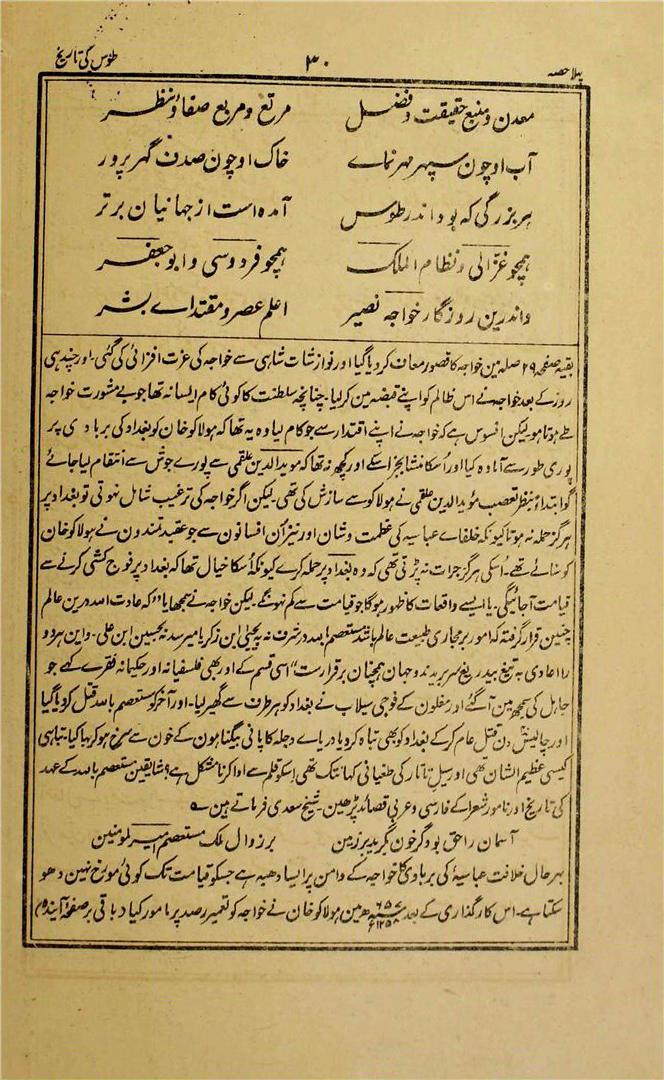 پہلا حصہ ۳۰ طوس کی تاریخ
معدن و منبع حقیقت و فضل مرتع و مربع صفا و نظر
آب او چون سپہر مہر نمائے خاک او چون صدف گہر پرور
ہر بزرگی کہ بود اندر طوس آمدہ است از جہانیان برتر
ہمچو غزالی و نظام الملک ہمچو فردوسی و ابو جعفر
واندرین روزگار خواجہ نصیر اعلم عصر و مقتداے بشر
بقیہ صفحہ ۲۹ صلہ مین خواجہ کا قصور معاف کر دیا گیا اور نوازشات شاہی سے خواجہ کی عزت افزائی کی گئی۔ اور چند ہی
روز کے بعد خواجہ نے اس ظالم کو اپنے قبضہ مین کر لیا۔ چنانچہ سلطنت کا کوئی کام ایسا نہ تھا جو بے مشورت خواجہ
طے ہوتا ہو۔ لیکن افسوس ہے کہ خواجہ نے اپنے اقتدار سے جو کام لیا وہ یہ تھا کہ ہولاکو خان کو بغداد کی بربادی پر
پوری طور سے آمادہ کیا اور اُسکا منشا بجز اسکے اور کچھ نہ تھا کہ موید الدین علقمی سے پورے جوش سے انتقام لیا جائے
گو ابتداءً بنظر تعصب موید الدین علقمی نے ہولاکو سے سازش کی تھی۔ لیکن اگر خواجہ کی ترغیب شامل نہوتی تو بغداد پر
ہرگز حملہ نہ ہوتا کیونکہ خلفاے عباسیہ کی عظمت و شان اور نیز اُن افسانون سے جو عقیدتمندون نے ہولاکو خان
کو سنائے تھے۔ اُسکی ہرگز جرات نہ پڑتی تھی کہ وہ بغداد پر حملہ کرے کیونکہ اُسکا خیال تھا کہ بغداد پر فوج کشی کرنے سے
قیامت آجائیگی۔ یا ایسے واقعات کا ظہور ہوگا جو قیامت سے کم نہونگے۔ لیکن خواجہ نے سمجھایا "کہ عادت اللہ درین عالم
چنین قرار گرفتہ کہ امور بر مجاری طبیعت عالم باشد مستعصم باللہ در شرف نہ بہ یحییٰ ابن زکریا میرسد نہ بحسین ابن علی۔ و این ہردو
را اعادی بہ تیغ بیدریغ سر بریدند و جہان ہمچنان برقرارست" اسی قسم کے اور بھی فلسفیانہ اور حکیمانہ فقرے کہے جو
جاہل کی سمجھ مین آگئے اور مغلون کے فوجی سیلاب نے بغداد کو ہر طرف سے گھیر لیا۔ اور آخر کو مستعصم باللہ قتل کر دیا گیا
اور چالیس دن قتل عام کر کے بغداد کو بھی تباہ کر دیا دریاے دجلہ کا پانی بیگناہون کے خون سے سرخ ہو کر بہا گیا۔ تباہی
کیسی عظیم الشان تھی اور سیل تاتار کی طغیانی کہانتک تھی اسکو قلم سے ادا کرنا مشکل ہے؟ شایقین مستعصم باللہ کے عہد
کی تاریخ اور نامور شعرا کے فارسی و عربی قصائد پڑھین۔ شیخ سعدی فرماتے ہین۔
آسمان را حق بود گر خون گرید بر زمین بر زوال ملک مستعصم امیر المومنین
بہرحال خلافت عباسیہ کی بربادی کا خواجہ کے دامن پر ایسا دھبہ ہے جسکو قیامت تک کوئی مورخ نہین دھو
سکتا ہے۔ اس کارگذاری کے بعد ۶۵۷ھ ۱۲۵۸ء مین ہولاکو خان نے خواجہ کو تعمیر رصد پر مامور کیا (باقی بر صفحہ آیندہ)